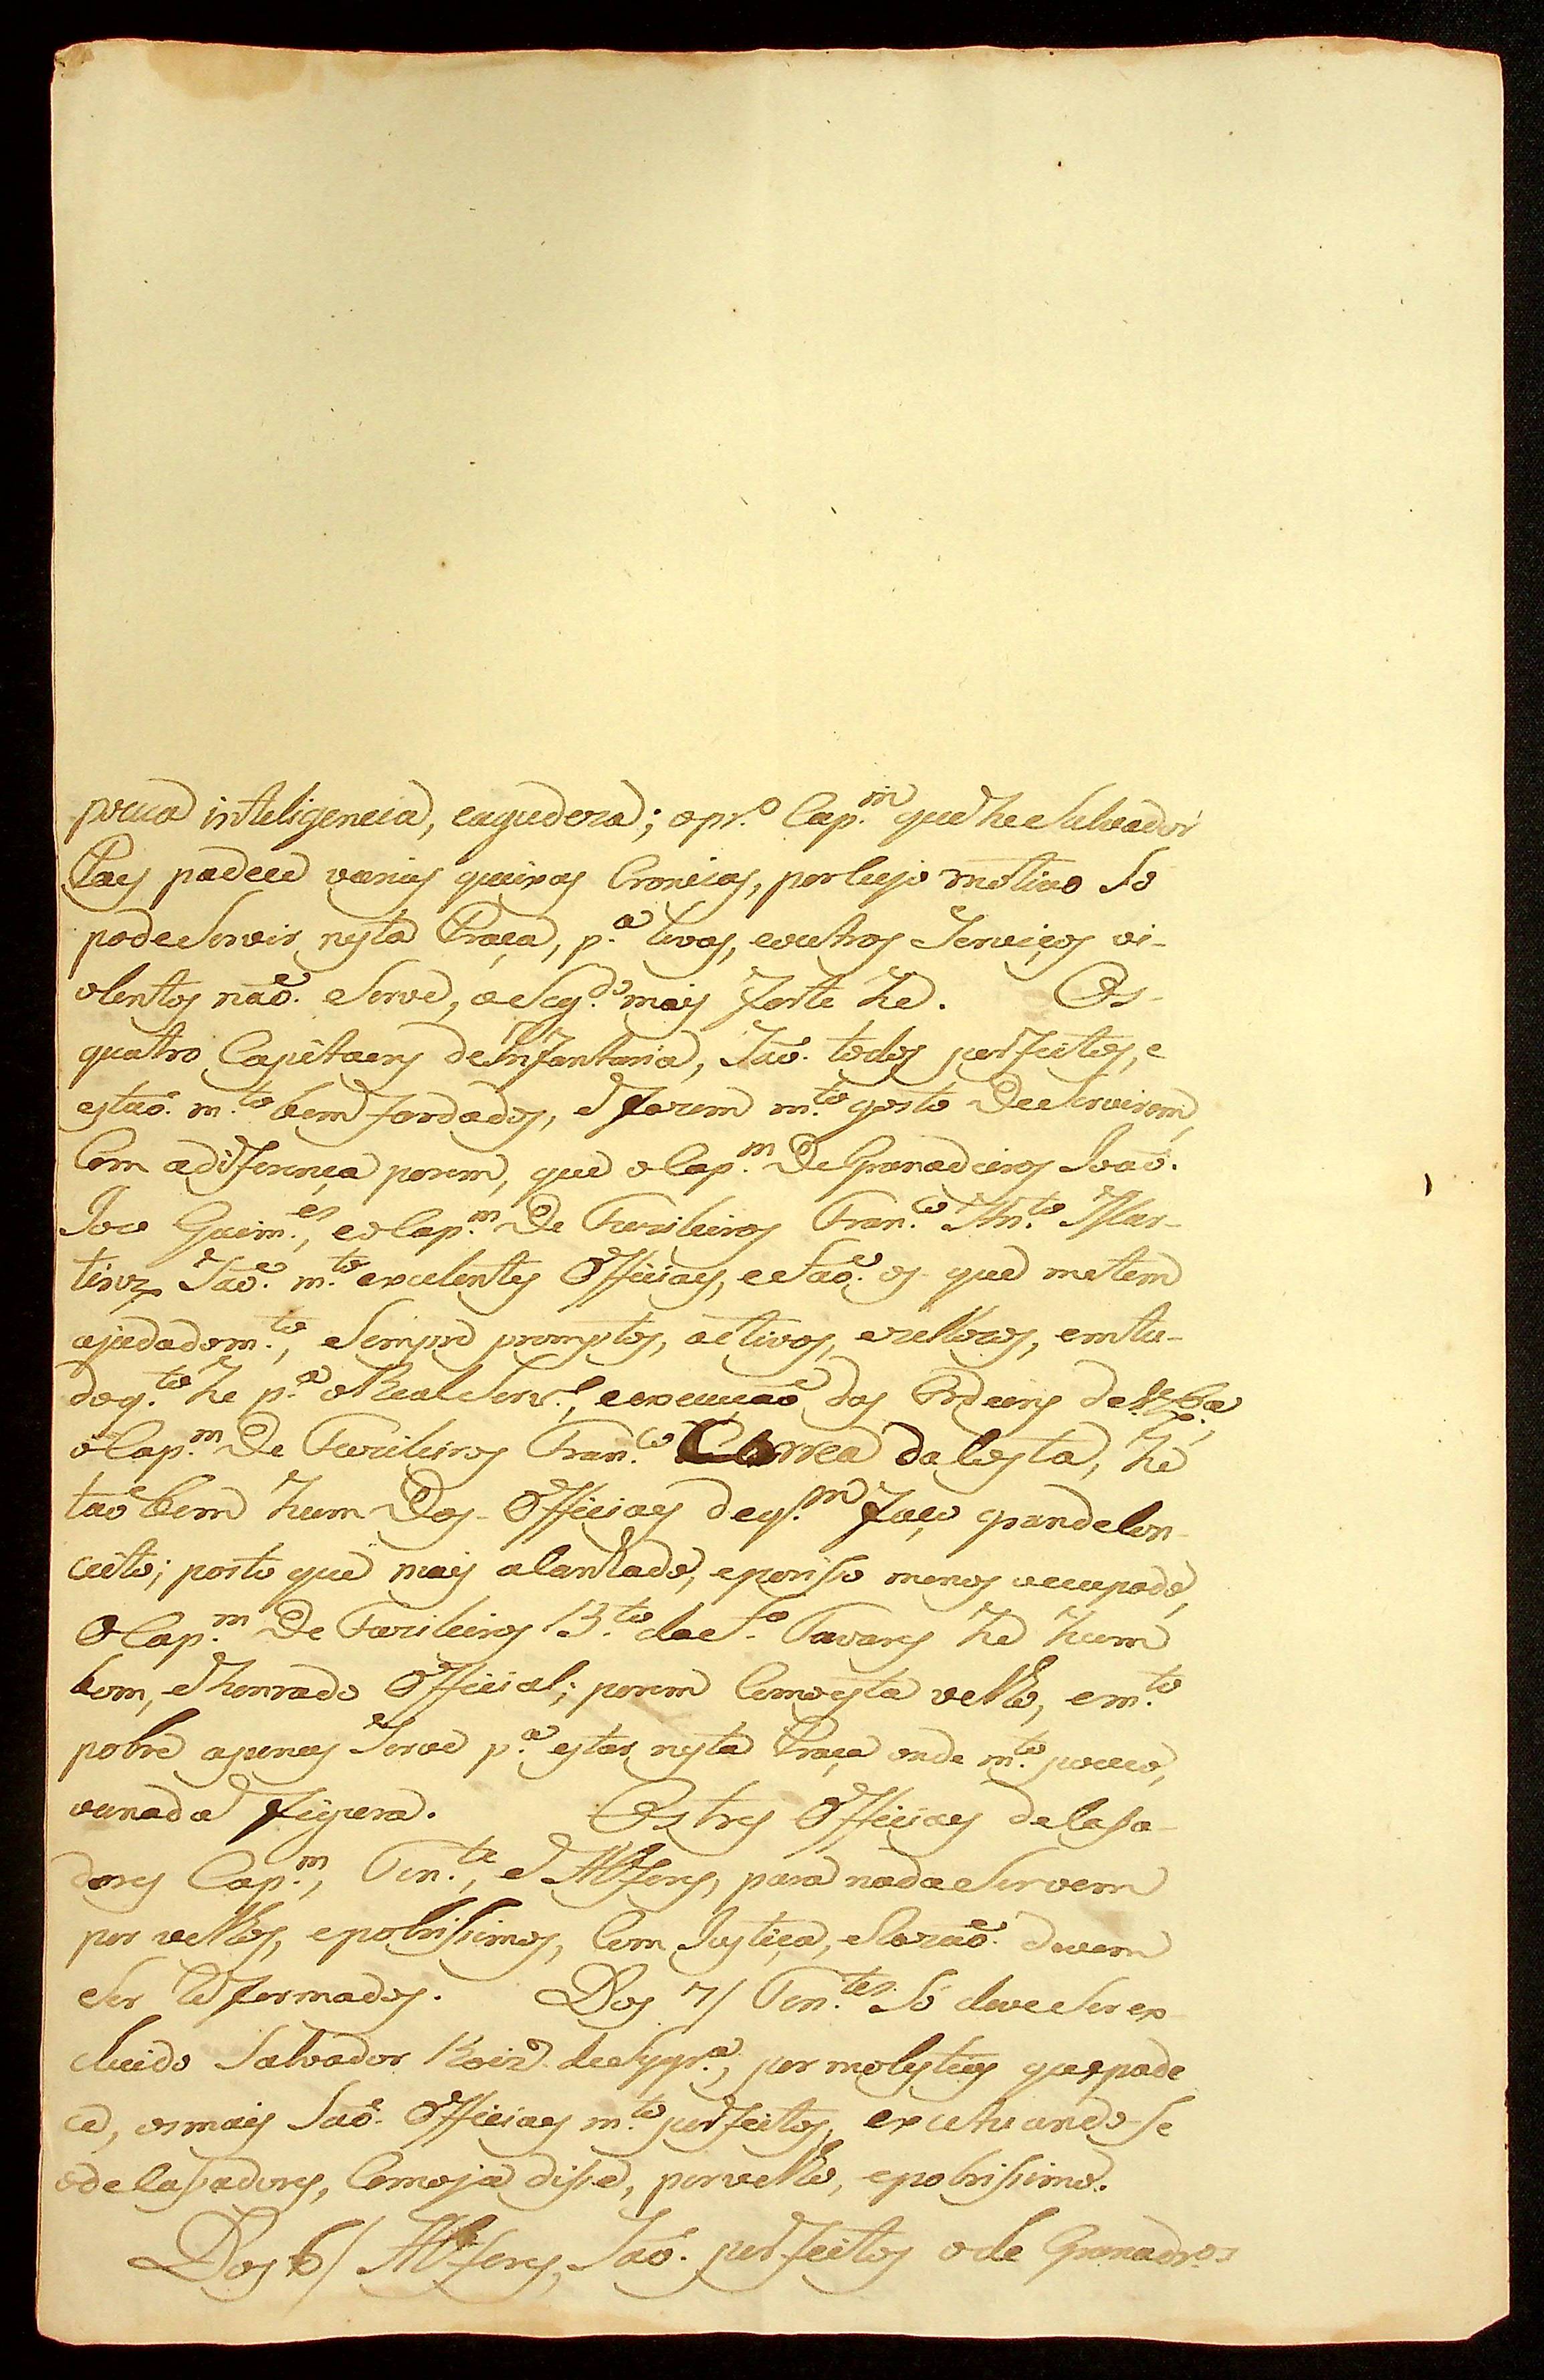 pouca inteligencia, eagudeza; opr.º Cap.m que he Salvador
Paes padece varias queixas Cronicas, porcujo motivo So
pode Servir nesta Praça, p.a tiros, eoutros Serviços vi-
olentos naõ. Serve, o Seg.do mais forte he. Os
quatro Capitaens de Infantaria, Saõ. todos perfeitos, e
estaõ. m.to bem fardados, e fazem m.to gosto De Servirem,
Com adiferença porem, que o Cap.m De Granadeiros Joaõ.
Joze Guim.es, eo Cap.m De Fuzileiros Fran.co Ant.o Mar-
tinz, Saõ. m.to excelentes Officiaes, e Saõ. os que metem
ajudadom.to, Sempre promptos, activos, ezellozos, emtu-
doq.to he p.a o Real Serv.o, eexecuçaõ das Ordens de
o Cap.m De Fuzileiros Fran.co Correa da Costa, he
taõ bem hum Dos Officiaes deq.m faço grande Con-
ceito; posto que mais alantado, eporiso menos occupado,
O Cap.m De Fuzileiros B.to da S.a Tavares he hum
bom, e honrado Official; porem Como está velho, em.to
pobre apenas Serve p.a estar nesta Praça onde m.to pouco,
ounada figura. Os tres Officiaes de Casa-
dores Cap.m, Ten.te, e Alferes, para nada Servem
por velhos, epobrissimos, Com Justiça, e Razaõ. devem
Ser Reformados. Dos 7/ Ten.tes Só deve Ser ex-
cluido Salvador Roiz de Siqr.a, por molestias que pade
ce, os mais Saõ. Officiaes m.to perfeitos, excetuando-se
ode Casadores, Como ja disse, porvelho, epobrissimo.
Dos 6/ Alferes, Saõ. perfeitos ode Granadr.os